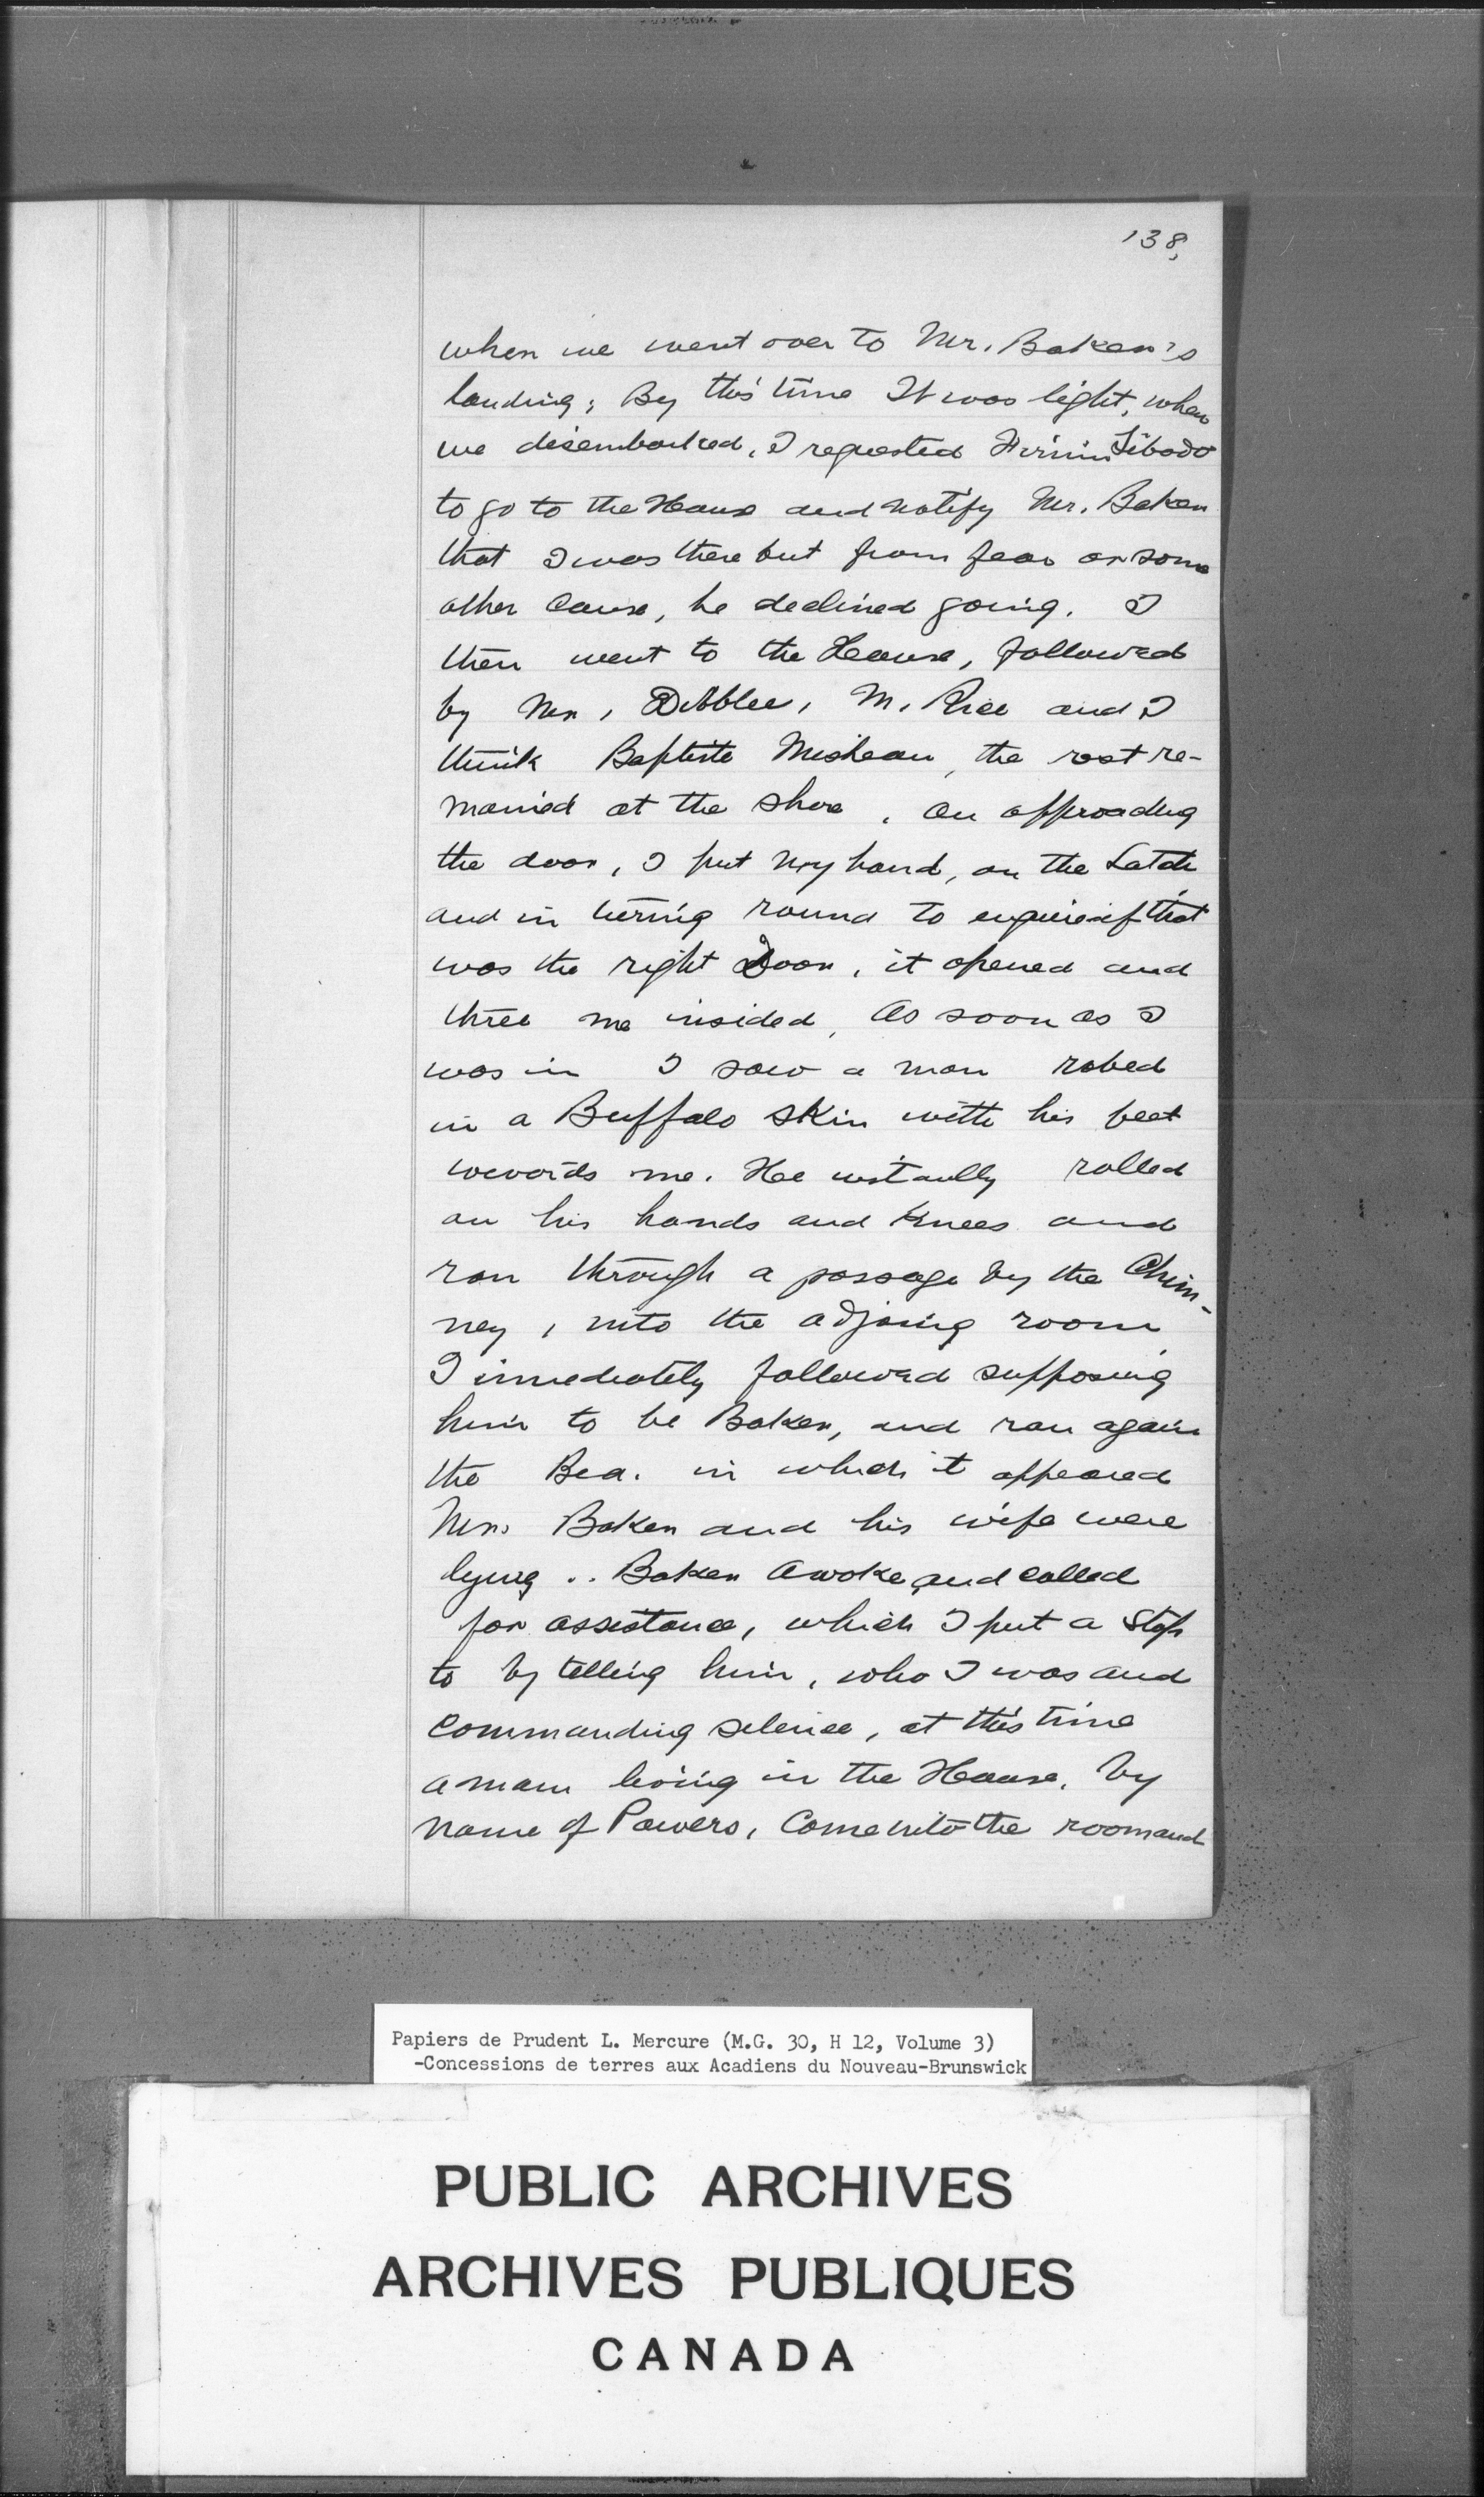 138,
when we went over to Mr. Baker's
landing; By this time It was light, when
we disembarked, I requested Firmin Tibodo
to go to the House and notify Mr. Baker
that I was there but from fear or some
other cause, he declined going. I
then went to the House, followed
by Mr, Dibblee, M. Rice and I
think Baptiste Misheau, the rest re-
mained at the shore, on approading
the door, I put my hand, on the Latch
and in turning round to enquire if that
was the right Door, it opened and
threw me insided, As soon as I
was in I saw a man robed
in a Buffalo skin with his feet
towards me. He instantly rolled
on his hands and knees and
ran through a passage by the Chim-
ney, into the adjoing room
I immediately followed supposing
him to be Baker, and ran again
the Bed. in which it appeared
Mr. Baker and his wife were
lying .. Baker awoke and called
for assistance, which I put a stop
to by telling him, who I was and
commanding silence, at this time
a man living in the House, by
name of Powers, Come into the room and
Papiers de Prudent L. Mercure (M.G. 30, H 12, Volume 3)
-Concessions de terres aux Acadiens du Nouveau-Brunswick
PUBLIC ARCHIVES
ARCHIVES PUBLIQUES
CANADA